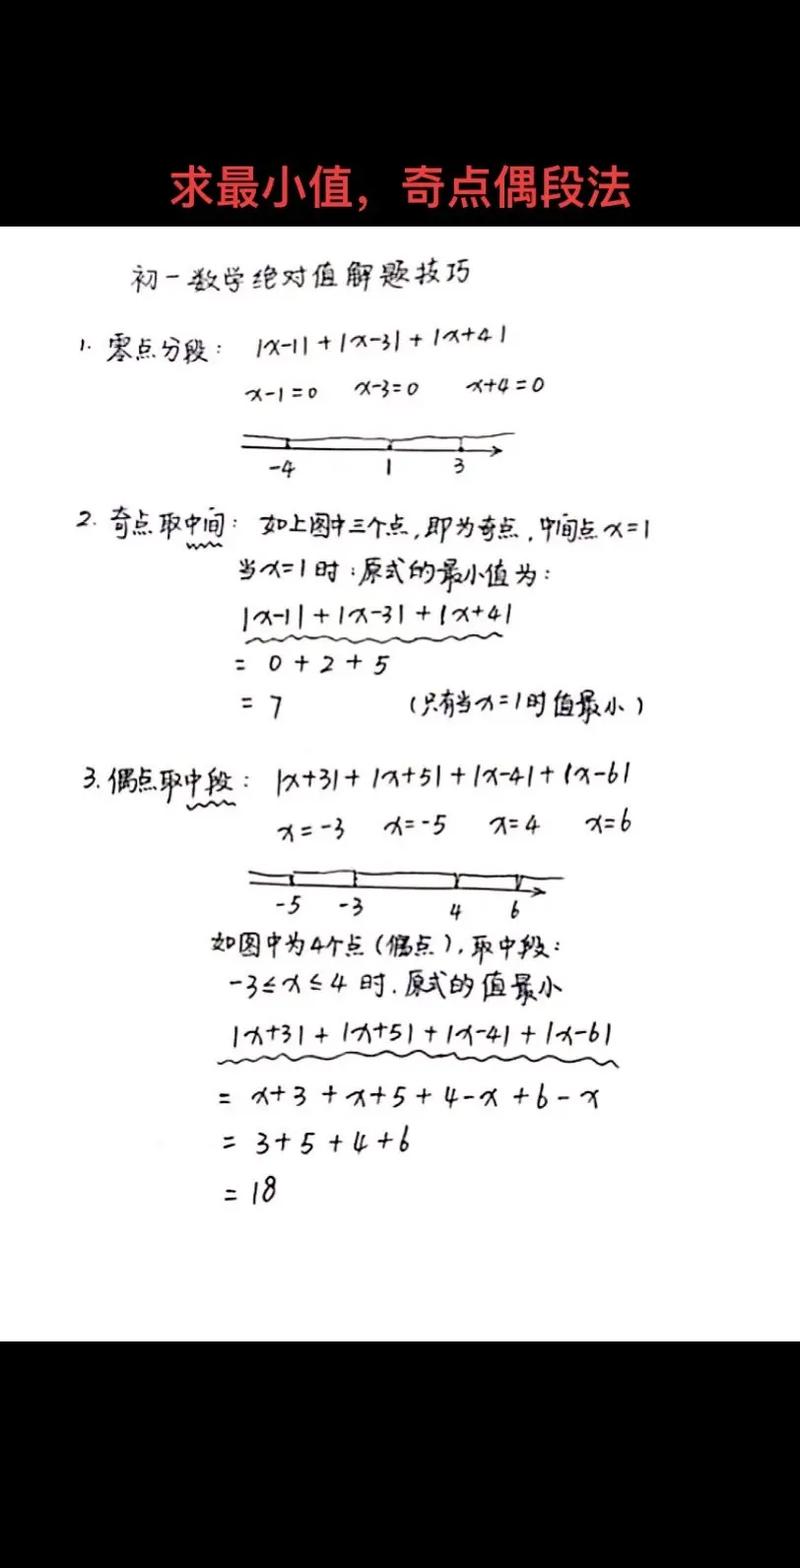 求最小值，奇点偶段法
初一数学绝对值解题技巧
1. 零点分段： |x-1|+|x-3|+|x+4|
x-1=0 x-3=0 x+4=0
-4 1 3
2. 奇点取中间： 如上图中三个点,即为奇点,中间点x=1
当x=1时:原式的最小值为:
|x-1|+|x-3|+|x+4|
= 0+2+5
= 7 (只有当x=1时值最小)
3. 偶点取中段： |x+3|+|x+5|+|x-4|+|x-6|
x=-3 x=-5 x=4 x=6
-5 -3 4 6
如图中为4个点(偶点),取中段:
-3≤x≤4时.原式的值最小
|x+3|+|x+5|+|x-4|+|x-6|
= x+3+x+5+4-x+6-x
= 3+5+4+6
= 18